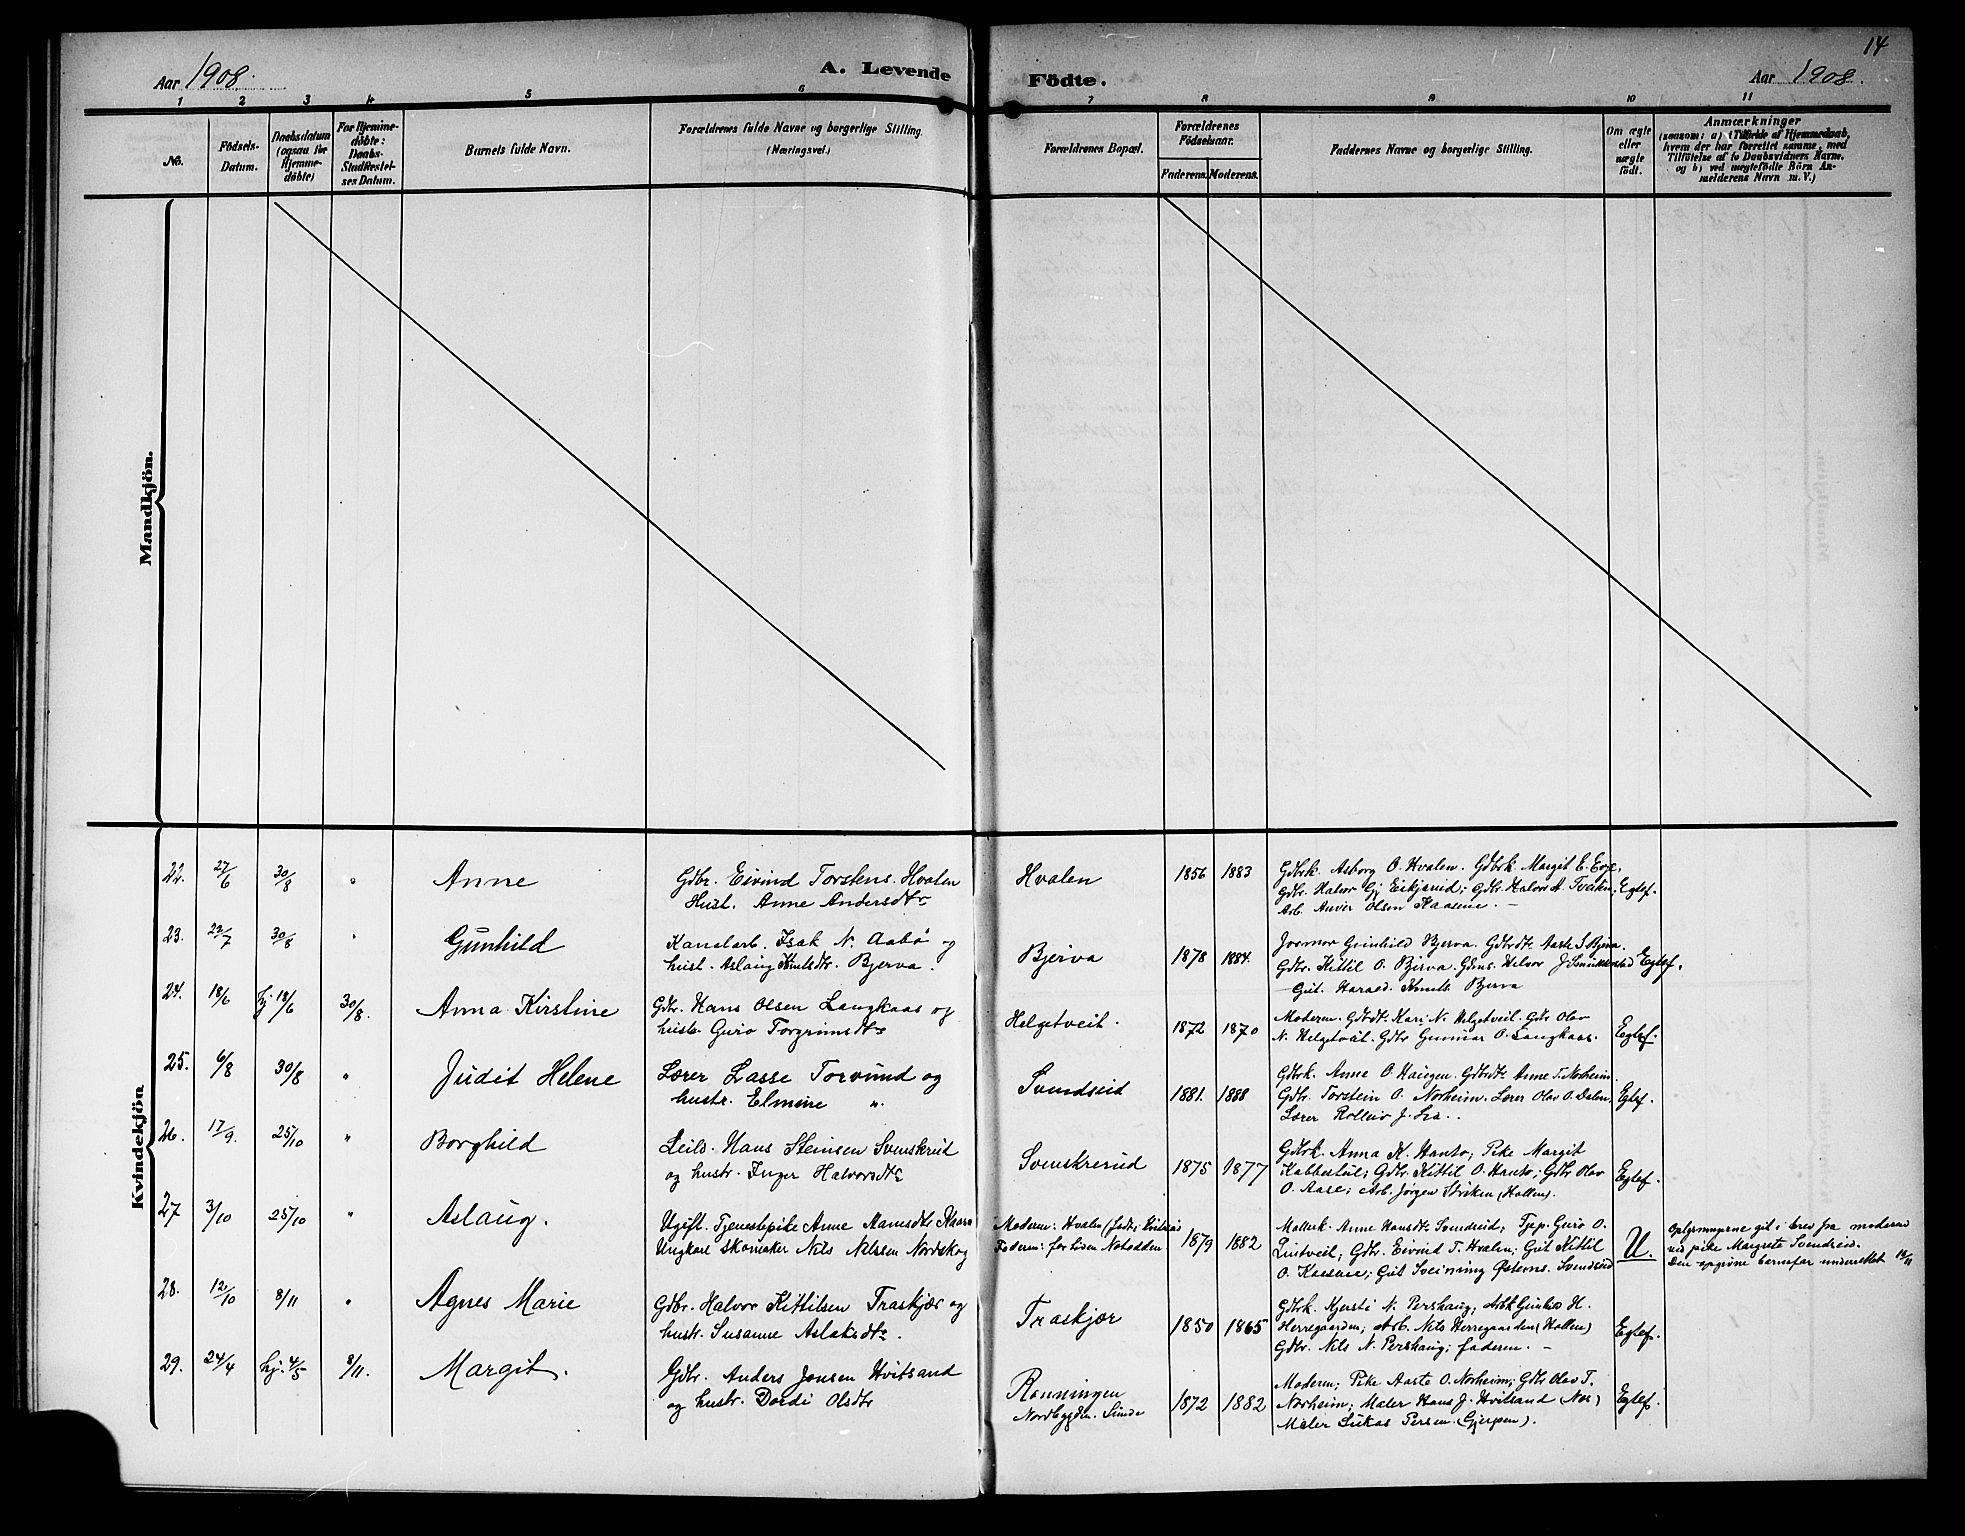 14
Aar 1908.
A. Levende
Födte.
Aar 1908.
1 2 3 4 5 6 7 8 9 10 11
No.
Födsels-
Datum.
Daabsdatum
(ogsaa for
Hjemme-
döbte)
For Hjemme-
döbte:
Daabs-
Stadfæstel-
ses Datum.
Barnets fulde Navn.
Forældrenes fulde Navne og borgerlige Stilling.
(Næringsvei.)
Forældrenes Bopæl.
Forældrenes
Födselsaar.
Faderens. Moderens.
Faddernes Navne og borgerlige Stilling.
Om ægte
eller
uægte
födt.
Anmærkninger
(saasom: a) i Tilfælde af Hjemmedaab,
hvem der har forrettet samme, med
Tilföielse af to Daabsvidners Navne,
og b) ved uægtefödte Börn An-
melderens Navn m. V.)
Mandkjön.
Kvindekjön
22. 27/6 30/8 " Anne
Gdbr. Eivind Torstens. Hvalen
Hust. Anne Andersdtr
Hvalen 1856 1883
Gdbrk. Asborg O. Hvalen. Gdbrk. Margit E.
Gdbr. Halvor Gj. ; Gdbr. Halvor A. Tveiten; Egtef.
Arb. Olsen Kaasene. —
23. 22/7 30/8 " Gunhild
Kanalarb. Isak N. Aabö og
hust. Aslaug Knutsdtr. Bjerva.
Bjerva 1878 1884.
Jormor Gunhild Bjerva. Gdbrdtr. Aaste S. Bjerva.
Gdbr. Kittil O. Bjerva. Gdms. Halvor J. Egtef.
Gut. Harald Knuts. Bjerva
24. 18/6 hj. 18/6 30/8. Anna Kirstine
Gdbr. Hans Olsen Langkaas og
hustr. Guro Torgrimsdtr
Helgetveit. 1872 1870
Moderen. Gdbdtr. Kari N. Helgetveit. Gdbr Olav
N. Helgetveit. Gdbr Gunnar O. Langkaas. Egtef.
25. 6/8 30/8 " Judit Helene
Lærer Lasse Torvund og
hustr. Elmine "
Svendseid 1881. 1888
Gdbrk. Anne O. Haugen. Gdbrdtr. Anne T. Norheim.
Gdbr. Torstein O. Norheim. Lærer Olav O. Dalen. Egtef.
Lærer Rolleiv J. Lia.
26. 17/9. 25/10 " Borghild
Leil. Hans Steinsen Svenskrud
og hustr. Inger Halvorsdtr
Svenskrerud 1875 1877
Gdbrk. Anna K. Hanto; Pike Margit
Kabbestul; Gdbr. Kittil O. Hanto; Gdbr Olav
O. Aase; Arb. Jørgen (Hollen). Egtef.
27 3/10 25/10 " Aslaug.
Ugift. Tjenestepike Anne Hansdtr
Ungkarl Skomaker Nils Nilssen Nordskog
Moderen: Hvalen
Faderen: for tiden Notodden 1879 1882
Møllerk. Anne Hansdtr Svendseid; Tjp. Guro O.
Lintveit; Gdbr. Eivind T. Hvalen; Gut Kittil
O. Kaasene; Gut Sveinung Østens. Svendseid
U.
Oplysningerne git i brev fra moderen
ved pike Margrete Svendseid.
Den opgivne barnefar underrettet 14/11
28. 12/10 8/11 " Agnes Marie
Gdbr. Halvor Kittilsen Traskjær og
hustr. Susanne Aslaksdtr.
Traskjær 1850 1865
Gdbrk. Kjersti N. Pershaug; Arbk Gunhild H.
Herregaarden; Arb. Nils Herregaarden (Hollen)
Gdbr. Nils N. Pershaug; faderen. — Egtef.
29. 24/4 hj. 4/5 8/11. Margit.
Gdbr. Anders Jonsen Hvitsand
og hustr. Dordi Olsdtr
Rønningen
Nordbygden. 1872 1882
Moderen; Pike Aaste O. Norheim; Gdbr Olav T.
Norheim; Maler Hans J. Hvitsand (Nes)
Maler Lukas Persen (Gjerpen). Egtef.